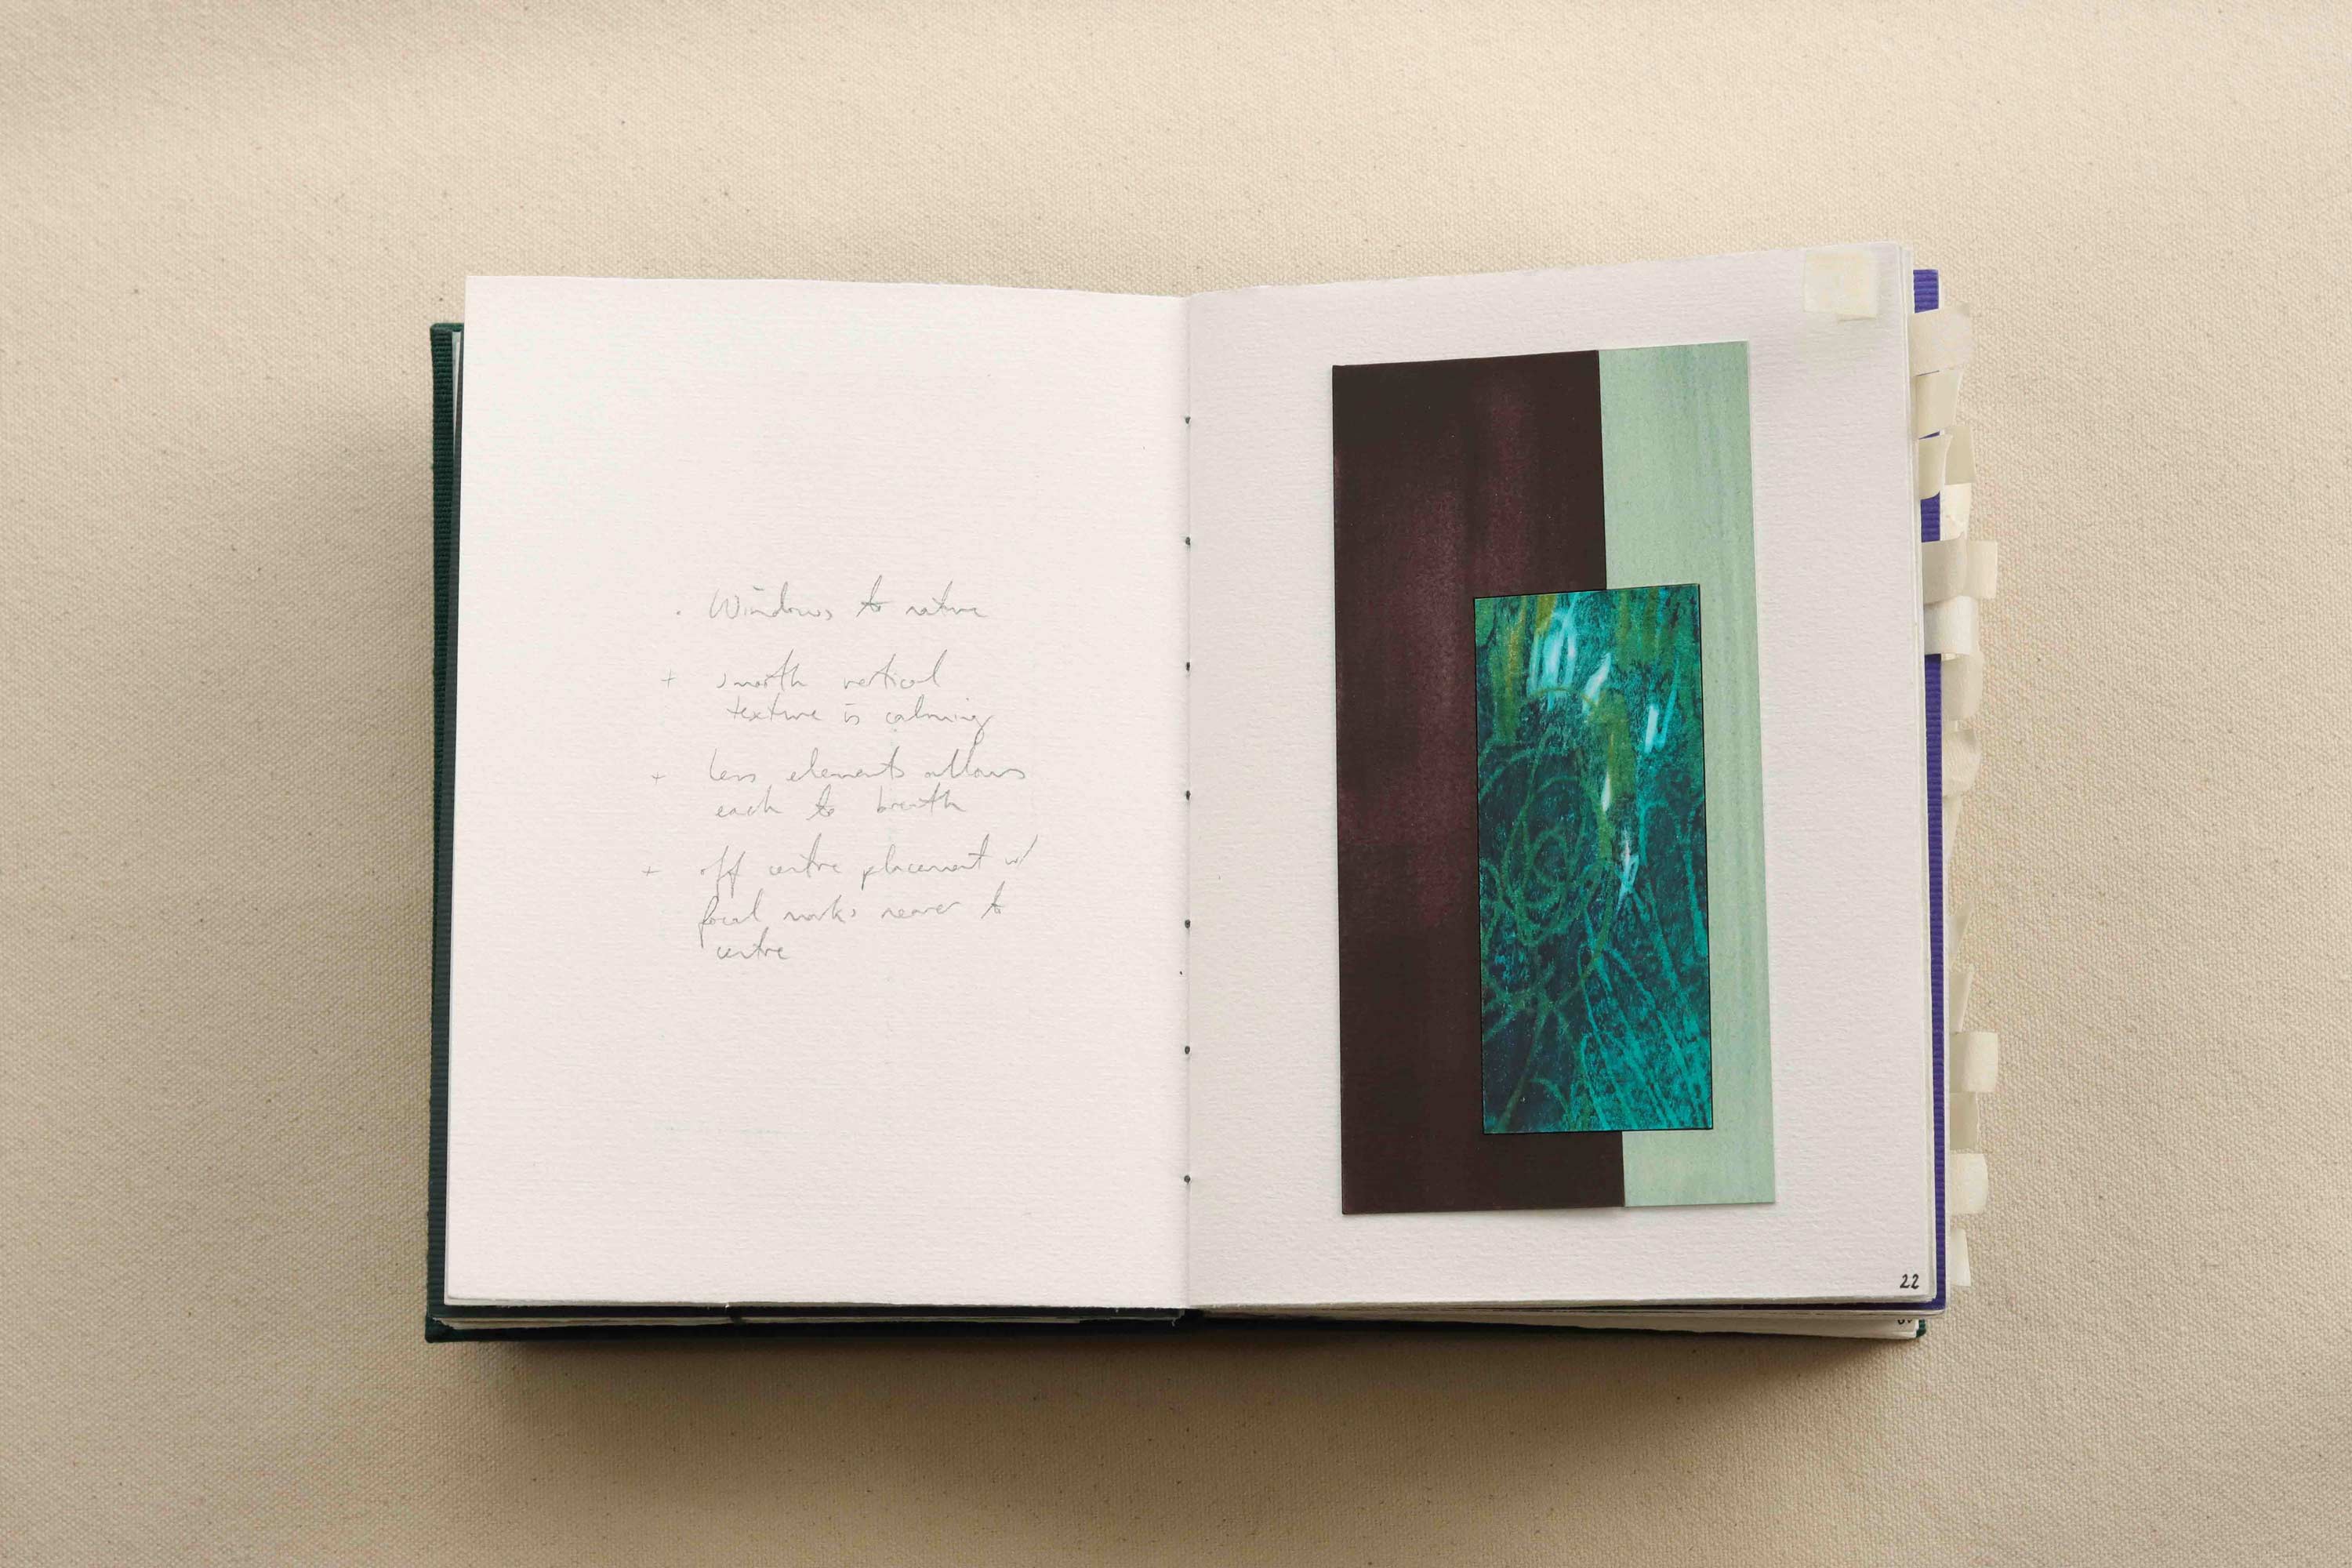 · Windows to nature
+ smooth vertical
texture is calming
+ less elements allows
each to breath
+ off centre placement w/
focal marks nearer to
centre
22